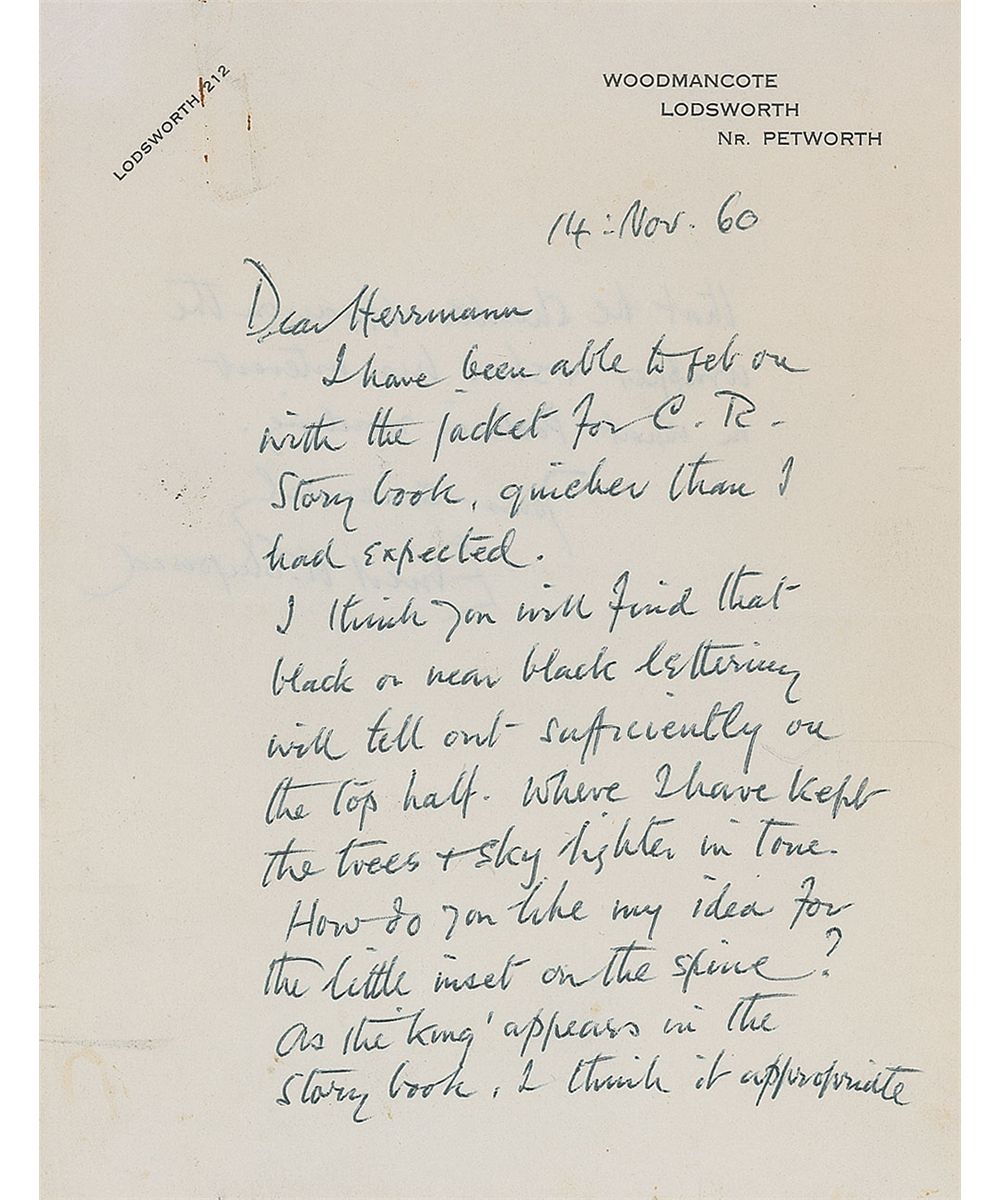 LODSWORTH 212
WOODMANCOTE
LODSWORTH
NR. PETWORTH
14: Nov. 60
Dear Herrmann
I have been able to get on
with the jacket for C. R.
Story book, quicker than I
had expected.
I think you will find that
black or near black lettering
will tell out sufficiently on
the top half. Where I have kept
the trees + sky lighter in tone.
How do you like my idea for
the little inset on the spine?
As the 'king' appears in the
Story book, I think it appropriate